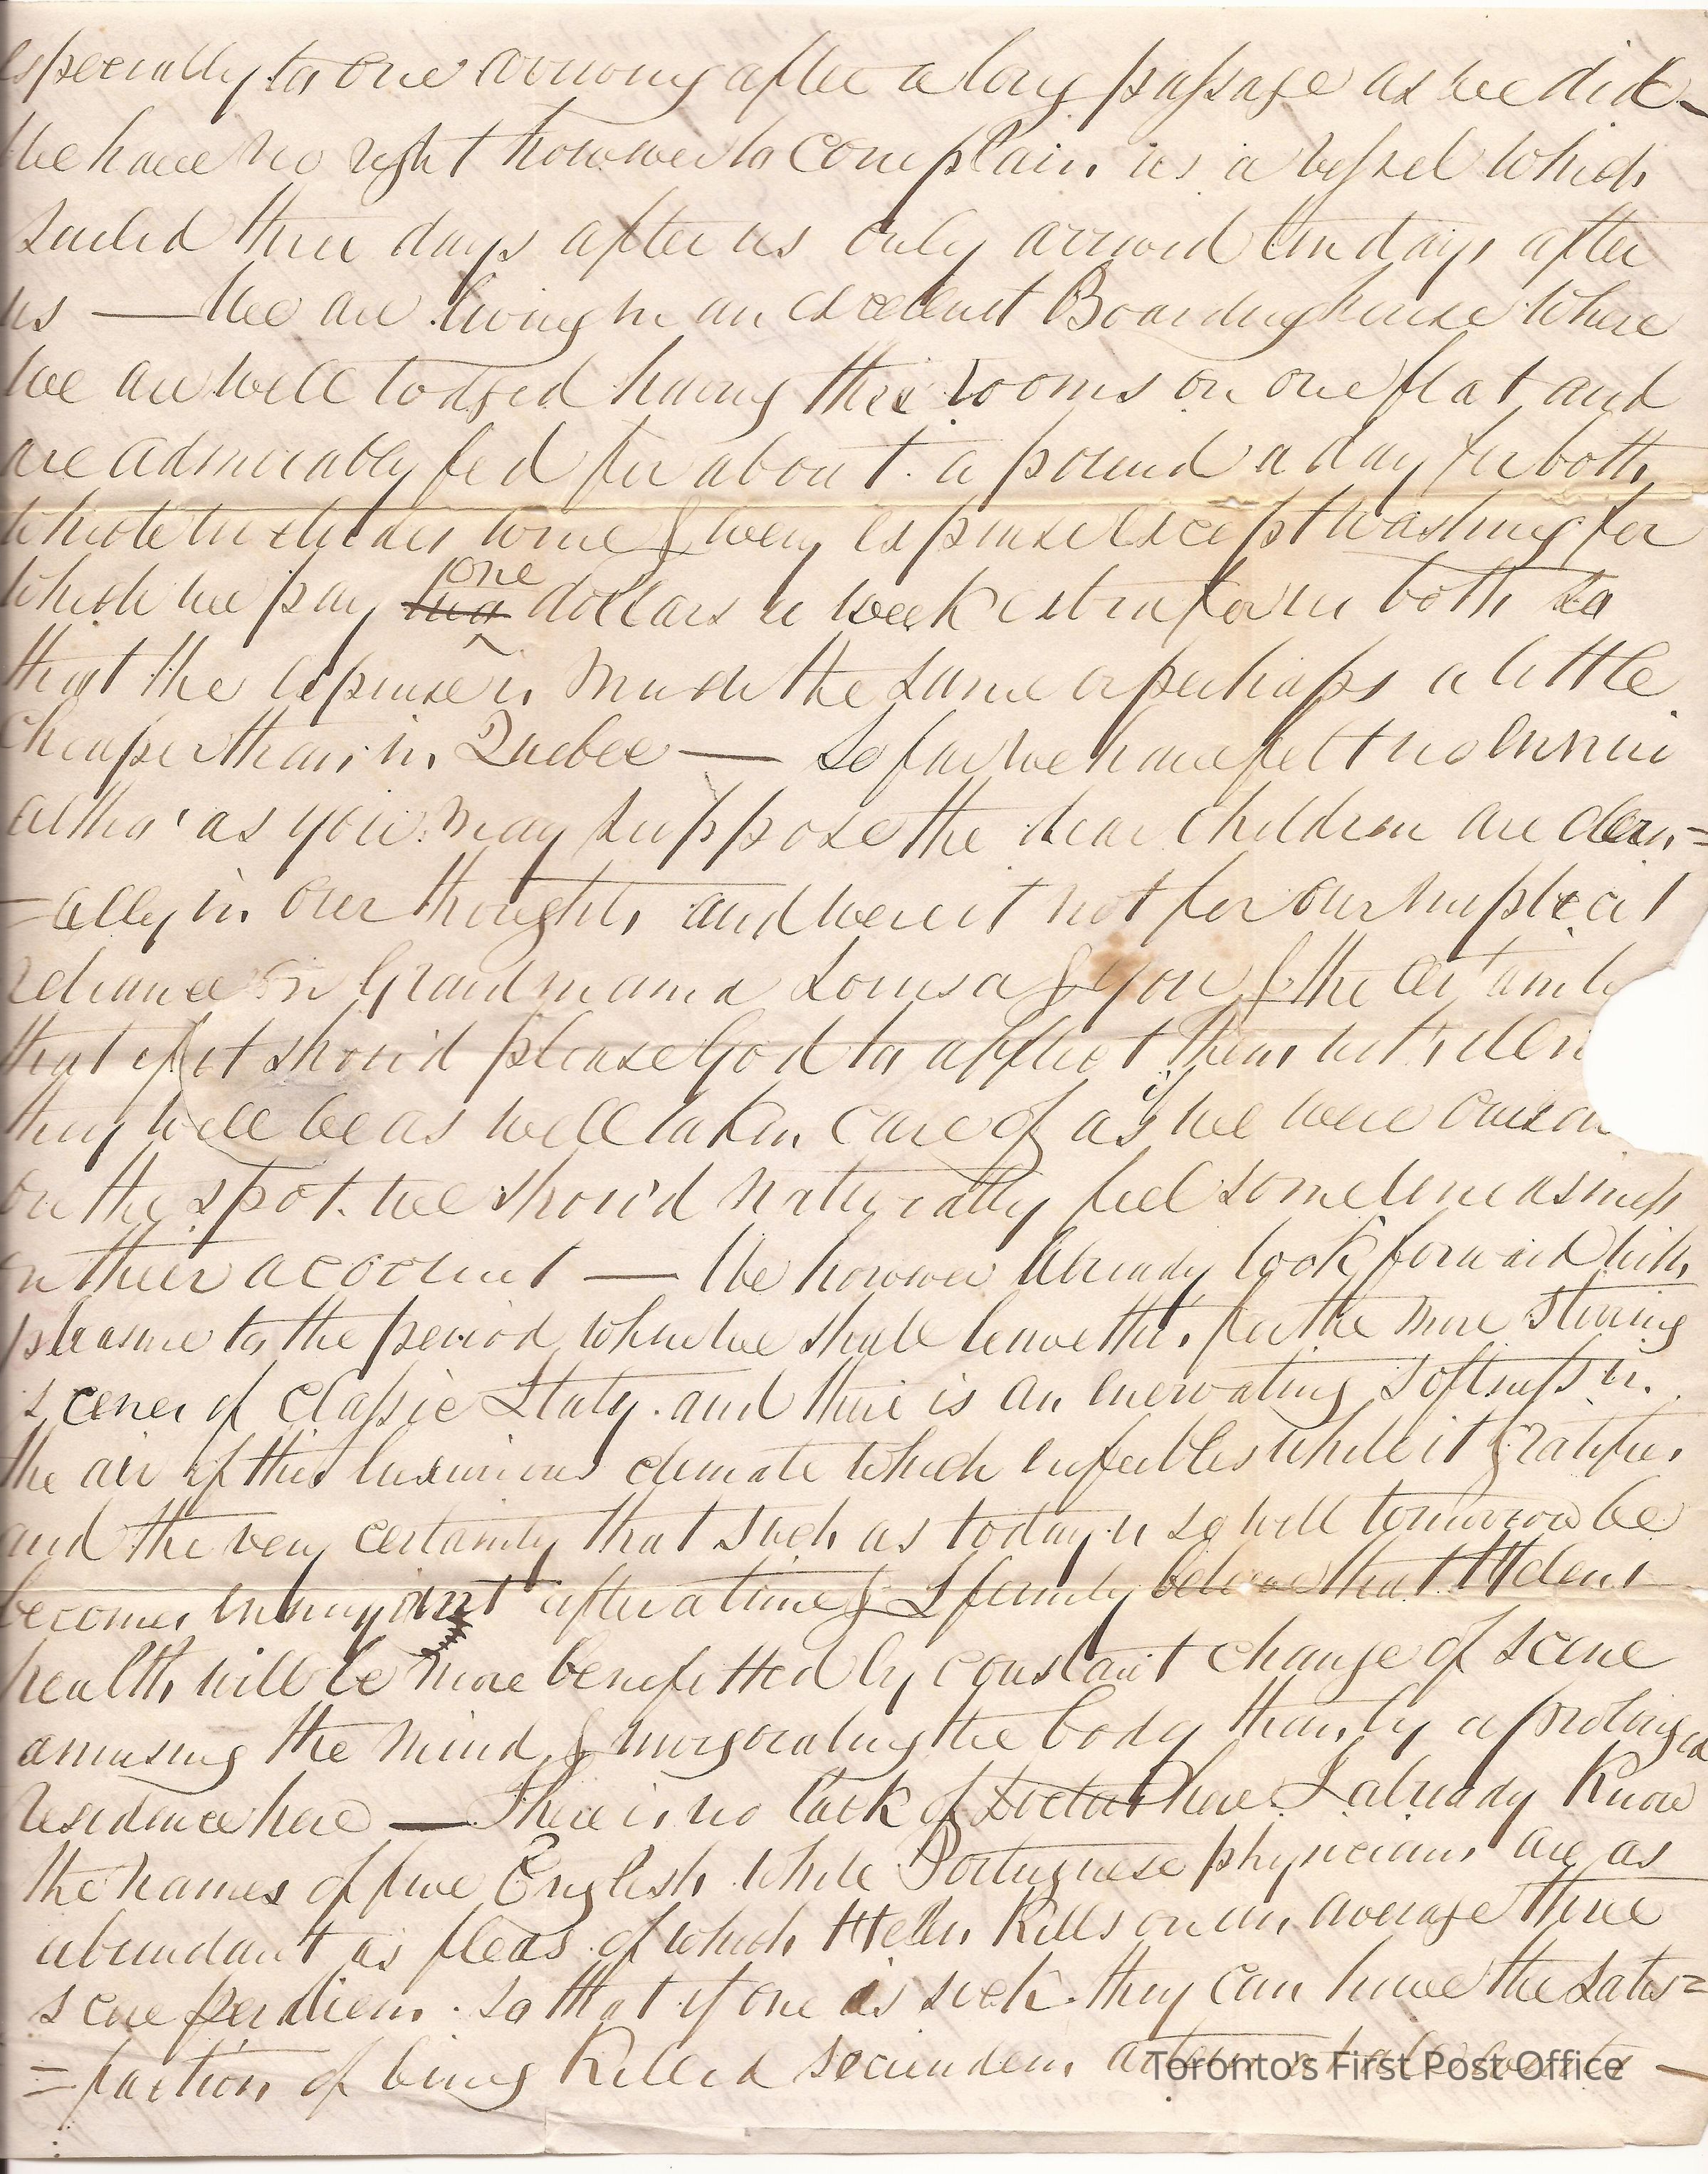 especially to one arriving after a long passage as we did —
We have no right however to complain, as a vessel which
sailed three days after us only arrived ten days after
us — We are living in an excellent Boarding house where
we are well lodged having three rooms on one flat and
are admirably fed for about a pound a day for both
which includes wine & every expense except washing for
which we pay two one dollars a week extra for us both so
that the expense is much the same or perhaps a little
cheaper than in Quebec — So far we have felt no ennui
altho' as you may suppose the dear children are
=ally in our thoughts, and were it not for our implicit
reliance on Grandmama Louisa & you & the certainty
that if it shou'd please God to afflict them with
they will be as well taken care of as if we were
on the spot. we shou'd naturally feel some uneasiness
on their account — We however already look forward with
pleasure to the period when we shall leave this, for the more stirring
scenes of classic Italy. and there is an enervating softness in
the air of this luxurious climate which enfeebles while it gratifies
and the very certainty that such as today is so will tomorrow be
becomes after a time & I firmly believe that Helens
health, will be more benefitted by constant change of scene
amusing the mind & invigorating the body than by a prolonged
residence here — There is no lack of Doctors here I already know
the names of five English while Portuguese physicians are as
abundant as fleas of which Helen kills on an average three
score per diem. so that if one is sick they can have the satis=
=faction of being killed secundem
Toronto's First Post Office